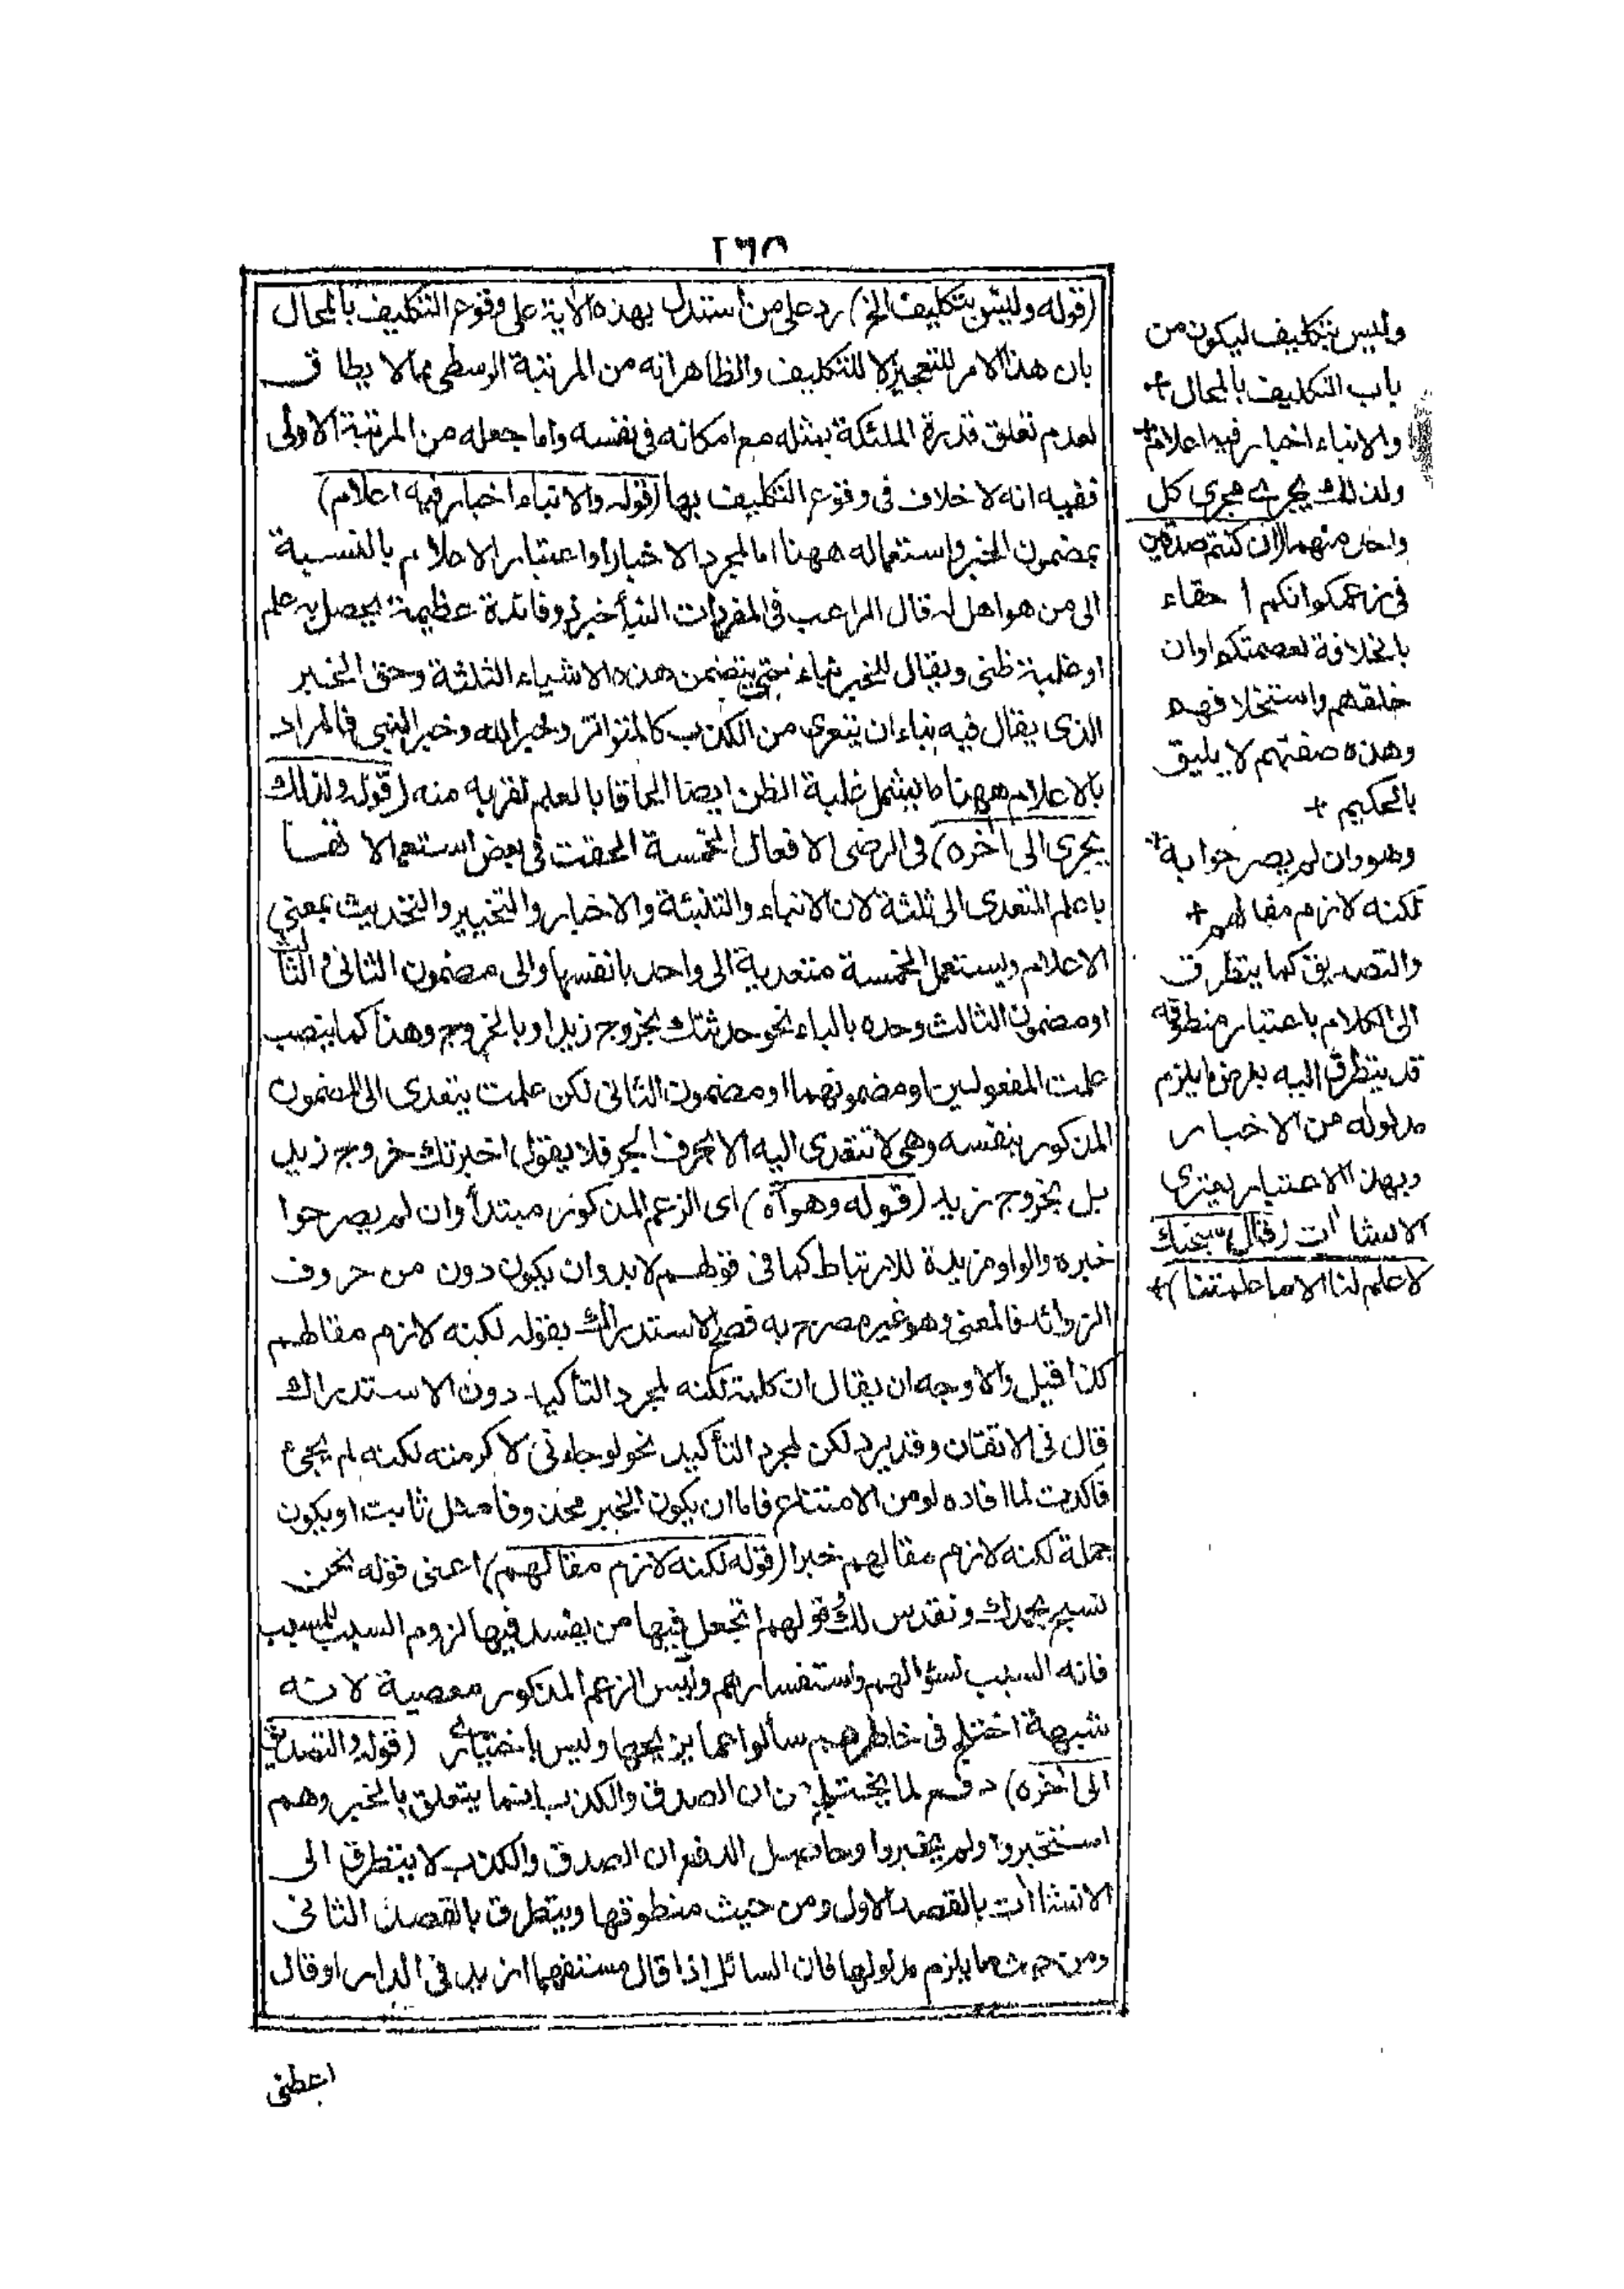 ٢٦٨
(قوله وليس بتكليف الخ) رد على من استدل بهذه الاية على وقوع التكليف بالمحال
بان هذا الامر للتعجيز لا للتكليف والظاهر انه من المرتبة الوسطى مما لا يطاق
لعدم تعلق قدرة الملئكة بمثله مع امكانه فى نفسه واما جعله من المرتبة الاولى
ففيه انه لا خلاف فى وقوع التكليف بها (قوله والانباء اخبار فيه اعلام)
بمضمون الخبر واستعماله ههنا اما لمجرد الاخبار او اعتبار الاعلام بالنسبة
الى من هو اهل له قال الراغب فى المفردات النبأ خبر ذو فائدة عظيمة يحصل به علم
او غلبة ظنى ويقال للخبر نباء حتى يتضمن هذه الاشياء الثلثة وحق الخبر
الذى يقال فيه نباء ان يتعرى من الكذب كالمتواتر وخبر الله وخبر النبى فالمراد
بالاعلام ههنا ما يشمل غلبة الظن ايضا الحاقا بالعلم لقربه منه (قوله ولذلك
يجرى الى اخره) فى الرضى الافعال الخمسة الحقت فى بعض استعمالاتها
باعلم المتعدى الى ثلثة لان الانباء والتنبئة والاخبار والتخبير والتحديث بمعنى
الاعلام ويستعمل الخمسة متعدية الى واحد بانفسها والى مضمون الثانى والثالث
او مضمون الثالث وحده بالباء نحو حدثتك بخروج زيد او بالخروج وهذا كما ينصب
علمت المفعولين او مضمونهما او مضمون الثانى لكن علمت يتعدى الى المضمون
المذكور بنفسه وهى لا تتعدى اليه الا بحرف الجر فلا يقول اخبرتك خروج زيد
بل بخروج زيد (قوله وهو آه) اى الزعم المذكور مبتدأ وان لم يصرحوا
خبره والواو مزيدة للارتباط كما فى قولهم لابد وان يكون دون من حروف
الزوائد فالمعنى وهو غير مصرح به فصح الاستدراك بقوله لكنه لازم مقالهم
كذا قيل والاوجه ان يقال ان كلمة لكنه لمجرد التأكيد دون الاستدراك
قال فى الاتقان وقد يرد لكن لمجرد التأكيد نحو لو جاءنى لاكرمته لكنه لم يجئ
فاكدت لما افاده لو من الامتناع فاما ان يكون الخبر محذوفا مثل ثابت او يكون
جملة لكنه لازم مقالهم خبرا (قوله لكنه لازم مقالهم) اعنى قوله نحن
نسبح بحمدك ونقدس لك وقولهم اتجعل فيها من يفسد فيها لزوم السبب للمسبب
فانه السبب لسؤالهم واستفسارهم وليس الزعم المذكور معصية لانه
شبهة اختلج فى خاطرهم سألوا عما يزيحها وليس باختيارى (قوله والتصديق
الى اخره) دفع لما يختلج من ان الصدق والكذب انما يتعلق بالخبر وهم
استخبروا ولم يخبروا وحاصل الدفع ان الصدق والكذب لا يتطرق الى
الانشاات بالقصد الاول ومن حيث منطوقها ويتطرق بالقصد الثانى
ومن حيث ما يلزم مدلولها فان السائل اذا قال مستفهما ازيد فى الدار او قال
اعطنى
وليس بتكليف ليكون من
باب التكليف بالمحال +
والانباء اخبار فيه اعلام +
ولذلك يجرى مجرى كل
واحد منهما (ان كنتم صدقين
فى زعمكم انكم احقاء
بالخلافة لعصمتكم او ان
خلقهم واستخلافهم
وهذه صفتهم لا يليق
بالحكيم +
وهو وان لم يصرحوا به +
لكنه لازم مقالهم +
والتصديق كما يتطرق
الى الكلام باعتبار منطوقه
قد يتطرق اليه بعرض ما يلزم
مدلوله من الاخبار
وبهذا الاعتبار يعترى
الانشاات (قالوا سبحنك
لا علم لنا الا ما علمتنا) +